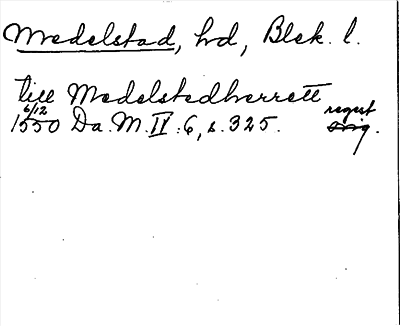 Medelstad, hd, Blek. l.
till Medelstedherrett
6/12 regist
1550 Da. M. IV: 6, s. 325. orig.